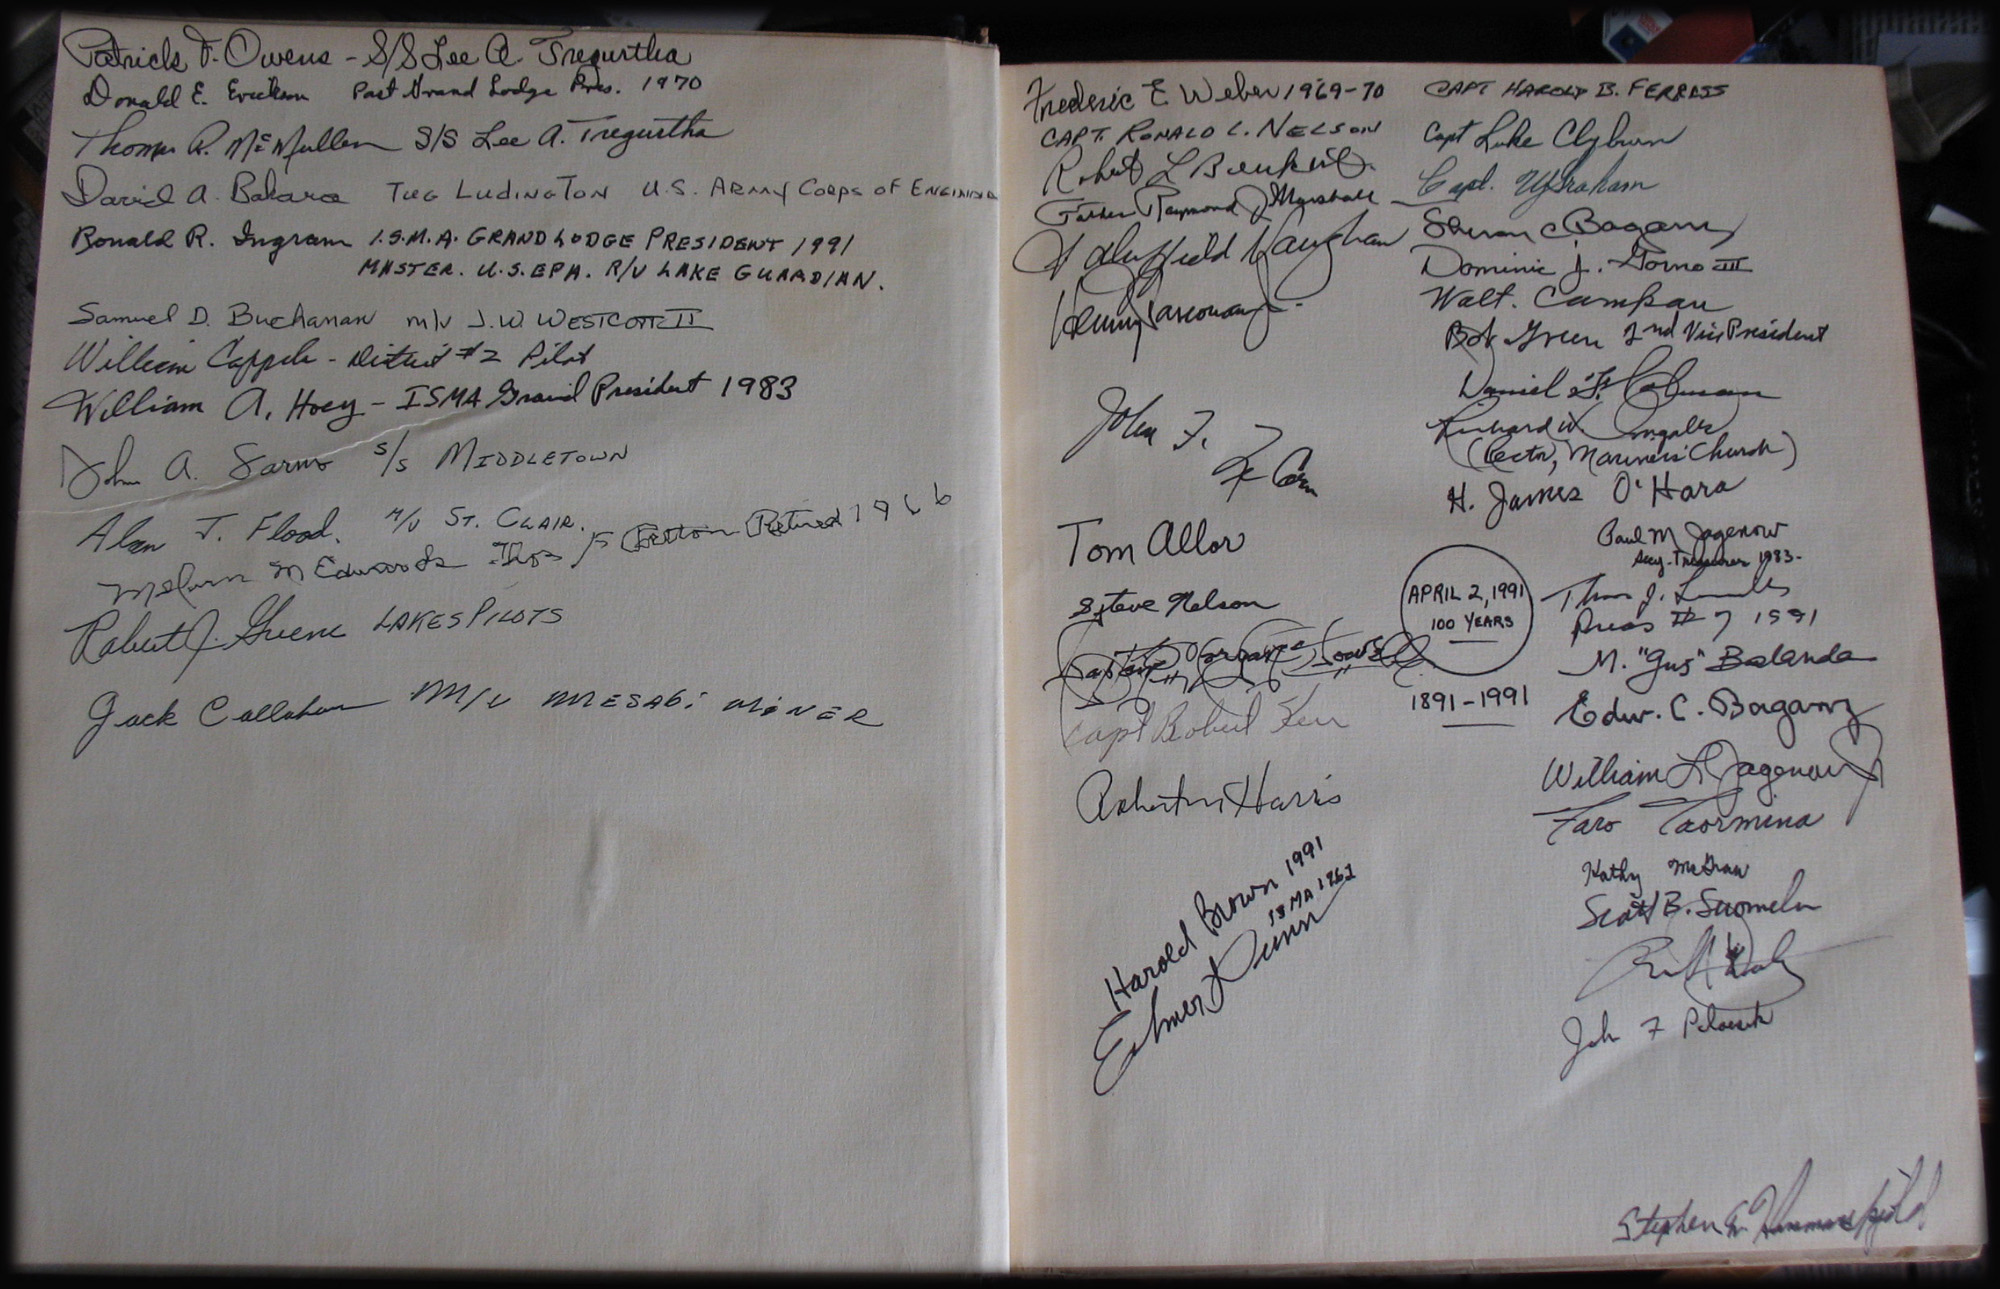 Patrick F. Owens - S/S Lee A Tregurtha
Donald E. Erickson Past Grand Lodge Pres. 1970
Thomas R. McMullen S/S Lee A. Tregurtha
David A. TUG LUDINGTON U.S. ARMY CORPS OF
Ronald R. Ingram I.S.M.A. GRAND LODGE PRESIDENT 1991
MASTER. U.S. EPA. R/V LAKE GUARDIAN.
Samuel D. Buchanan M/V J.W. WESTCOTT II
William - District #2 Pilot
William A. Hoey - ISMA Grand President 1983
John A. S/S MIDDLETOWN
Alan J. Flood. M/V ST. CLAIR.
Melvin M Edwards Thos F Patton Retired 1966
Robert J. Greene LAKES PILOTS
Jack Callahan M/V MESABI MINER
Frederic E Weber 1969-70
CAPT. RONALD L. NELSON
Robert L
Father Raymond J Marshall
Duffield Vaughan
John F.
Tom Allor
Steve Nelson
Capt Robert Kerr
Robert Harris
Harold Brown 1991
Elmer Dunn
CAPT HAROLD B.
Capt Luke Clyburn
Capt.
C Baganz
Dominic J. Gorno III
Walt. Campau
Bob Green 2nd Vice President
Daniel F.
Richard W. Ingalls
(Rector, Mariners' Church)
H. James O'Hara
Paul M Jagenow
Secy-Treasurer 1983-
APRIL 2, 1991
100 YEARS
1891-1991
J.
Pres # 7 1991
M. "Gus"
Edw. C. Baganz
William Jagenow Jr
Faro Taormina
Kathy McGraw
Scott B. Suomela
John F
Stephen